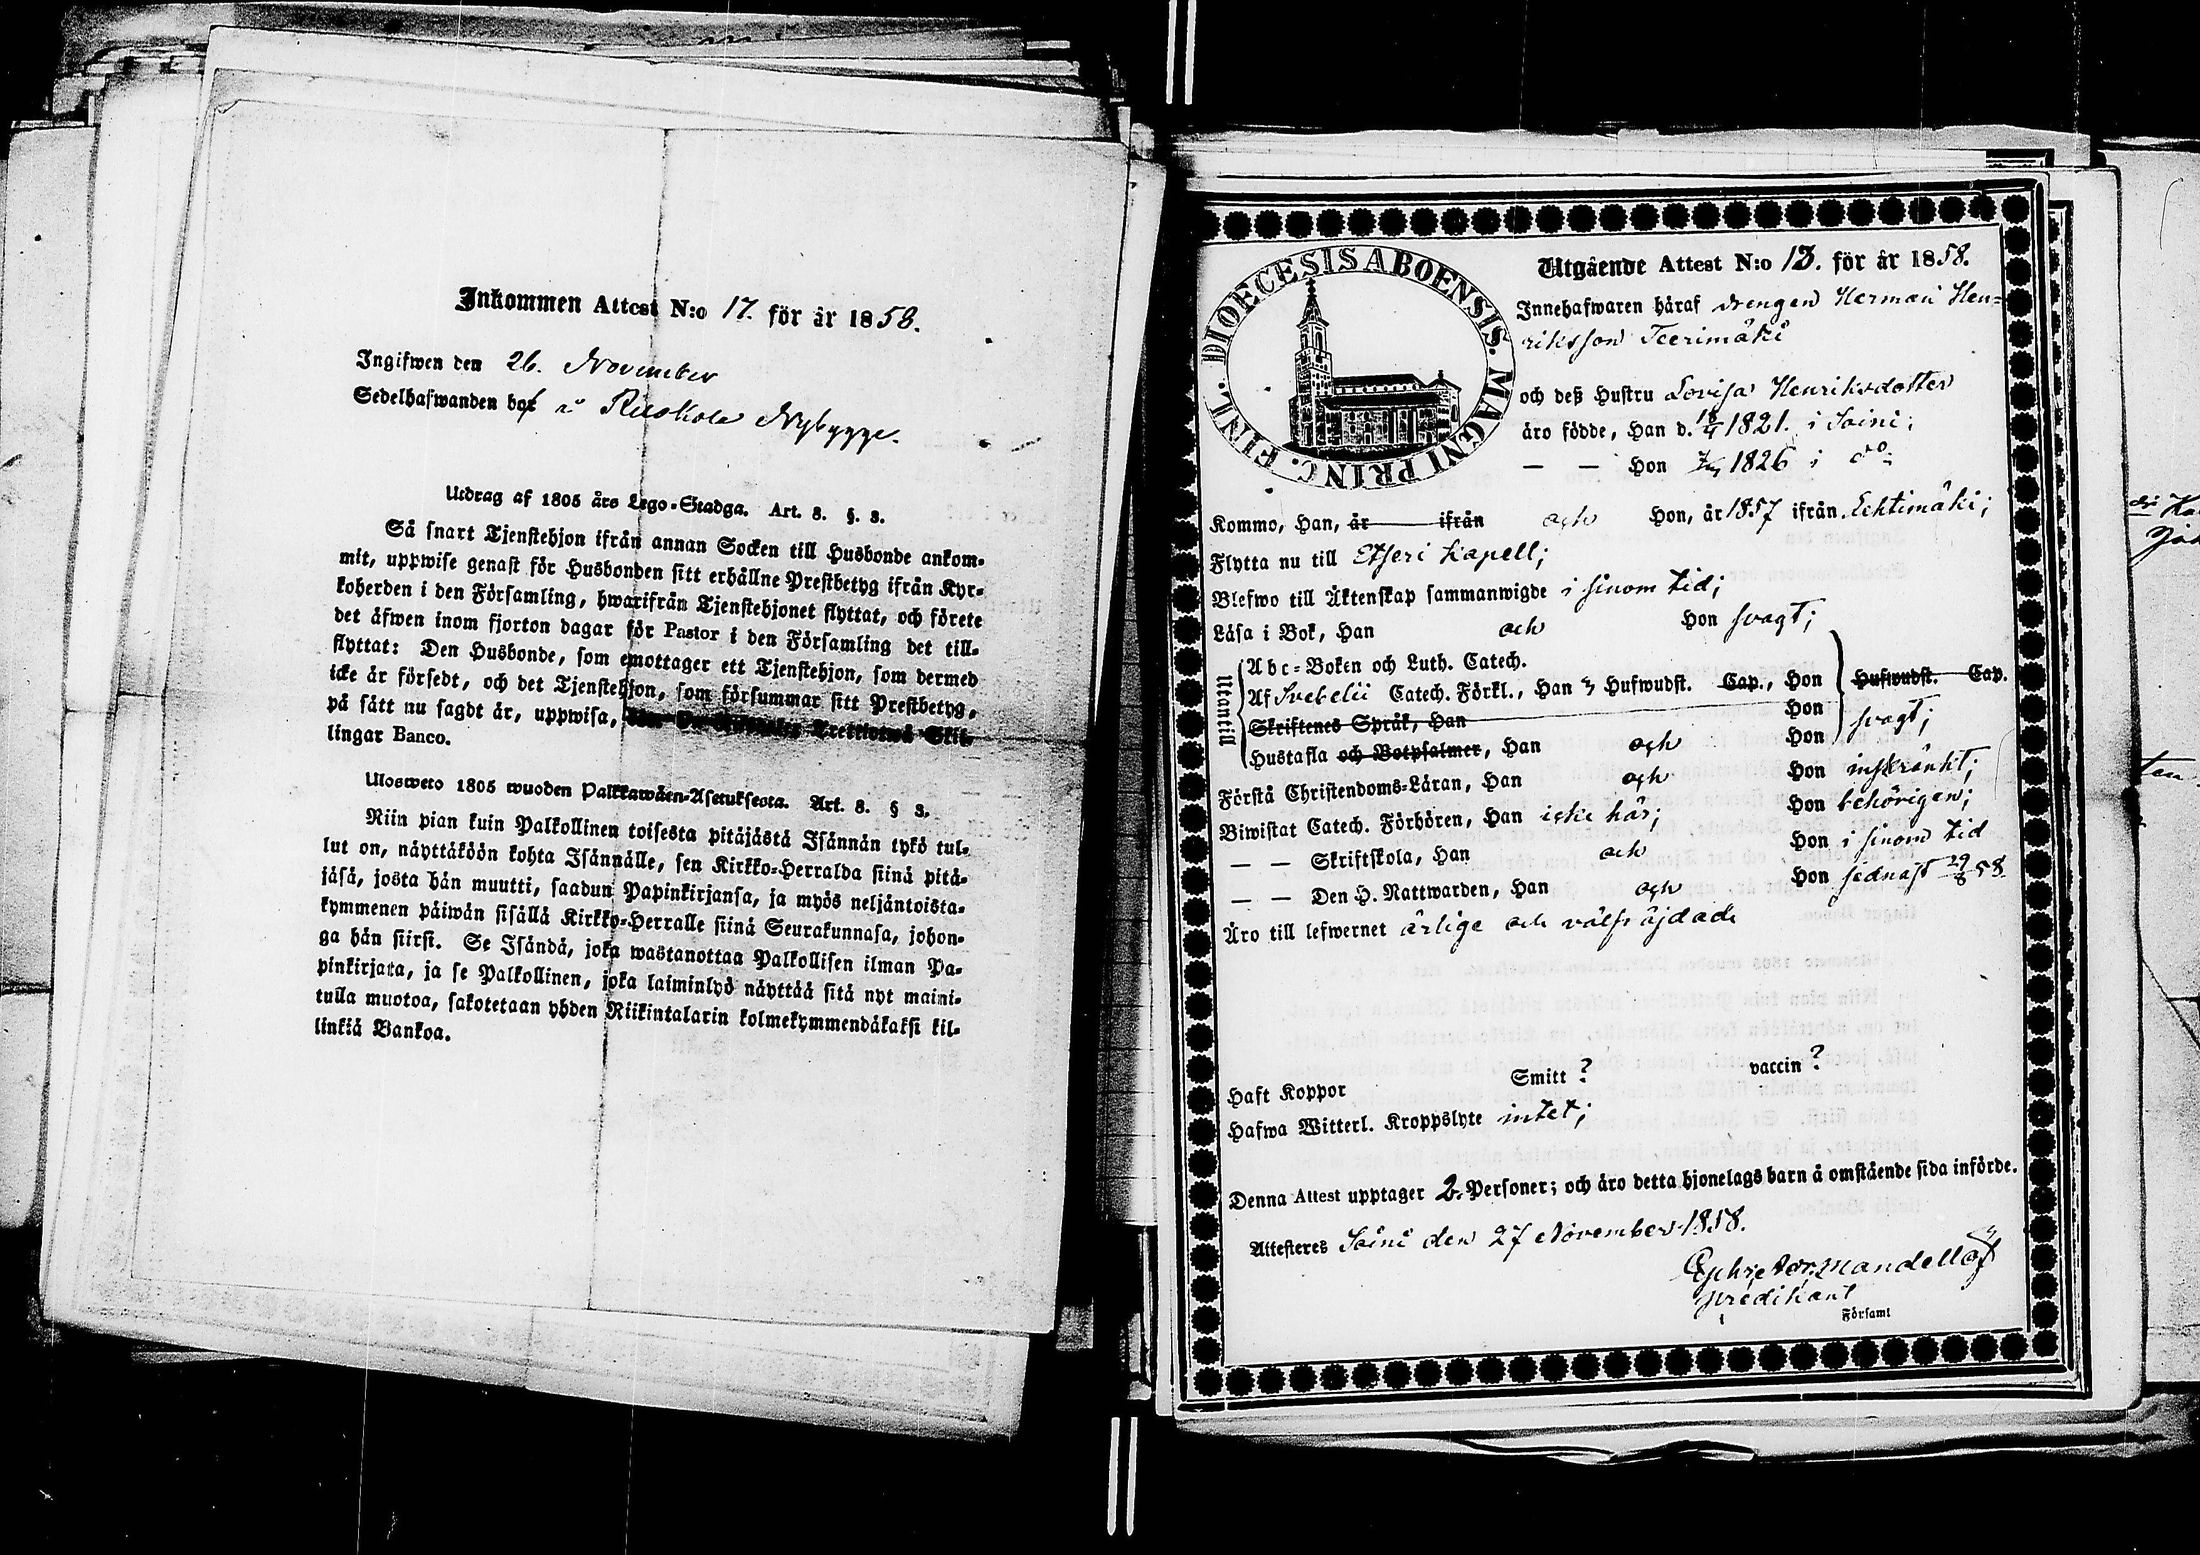 Inkommen Attest N:o 17. för år 1858.
Ingifwen den 26. November
Sedelhafwanden bor å Ruokola Nybygge.
Utdrag af 1805 års Lego-Stadga. Art. 8. §. 3.
Så snart Tjenstehjon ifrån annan Socken till Husbonde ankom-
mit, uppwise genast för Husbonden sitt erhållne Prestbetyg ifrån Kyr-
koherden i den Församling, hwarifrån Tjenstehjonet flyttat, och förete
det äfwen inom fjorton dagar för Pastor i den Församling det till-
flyttat: Den Husbonde, som emottager ett Tjenstehjon, som dermed
icke är försedt, och det Tjenstehjon, som försummar sitt Prestbetyg,
på sätt nu sagdt är, uppwisa, Trettiotwå Skil-
lingar Banco.
Ulosweto 1805 wuoden Palkkawäen-Asetuksesta. Art. 8. § 3.
Niin pian kuin Palkollinen toisesta pitäjästä Isännän tykö tul-
lut on, näyttäköön kohta Isännälle, sen Kirkko-Herralda siinä pitä-
jäsä, josta hän muutti, saadun Papinkirjansa, ja myös neljäntoista-
kymmenen päiwän sisällä Kirkko-Herralle siinä Seurakunnasa, johon-
ga hän siirsi. Se Isändä, joka wastanottaa Palkollisen ilman Pa-
pinkirjatta, ja se Palkollinen, joka laiminlyö näyttää sitä nyt maini-
tulla muotoa, sakotetaan yhden Riikintalarin kolmekymmendäkaksi kil-
linkiä Bankoa.
DIOECESIS ABOENSIS. MAGNI PRINC. FINL.
Utgående Attest N:o 13. för år 1858.
Innehafwaren häraf drengen Herman Hen-
riksson Teerimäki
och deß Hustru Lovisa Henriksdotter
äro födde, Han d. 1821. i Soini;
— — Hon 1826 i do;
Kommo, Han, år ifrån och Hon, år 1857 ifrån Lehtimäki;
Flytta nu till Etseri Kapell;
Blefwo till Äktenskap sammanwigde i sinom tid;
Läsa i Bok, Han och Hon svagt;
Utantill
Abc-Boken och Luth. Catech.
Af Svebelii Catech. Förkl., Han 3 Hufwudst. Cap., Hon Hufwudst. Cap.
Skriftenes Språk, Han Hon
Hustafla och Botpsalmer, Han och Hon svagt;
Förstå Christendoms-Läran, Han och Hon inskränkt;
Biwistat Catech. Förhören, Han icke här; Hon behörigen;
— — Skriftskola, Han och Hon i sinom tid
— — Den H. Nattwarden, Han och Hon sednast 29/8 58.
Äro till lefwernet ärlige och välfräjdade
Haft Koppor Smitt? vaccin?
Hafwa Witterl. Kroppslyte intet;
Denna Attest upptager 2. Personer; och äro detta hjonelags barn å omstående sida införde.
Attesteras Soini den 27 November 1858.
predikant
Församl